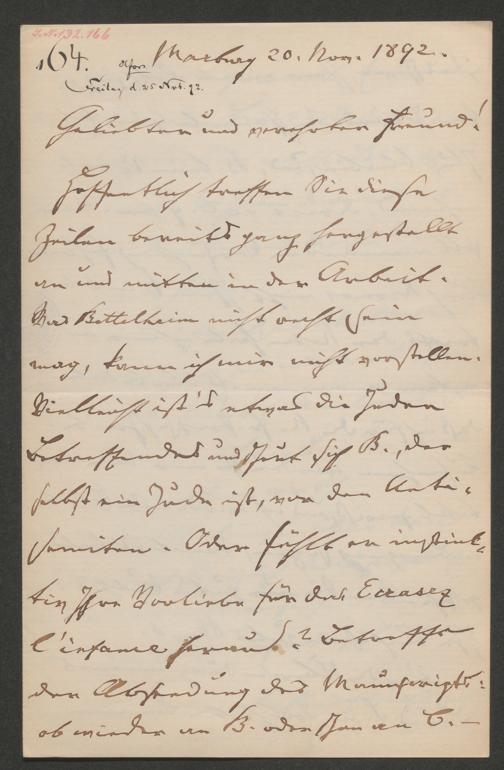 I.N. 132.166
164. Marburg 20. Nov. 1892.
Freitag d. 25 Nov. 92.
Geliebter und verehrter Freund!
Hoffentlich treffen Sie diese
Zeilen bereits ganz hergestellt
an und mitten in der Arbeit.
Was Bettelheim nicht recht sein
mag, kann ich mir nicht vorstellen.
Vielleicht ist's etwas die Juden
Betreffendes und scheut sich B., der
selbst ein Jude ist, vor den Anti-
semiten. Oder fühlt er instink-
tiv Ihre Vorliebe für das Ecrasez
l'infame heraus? Betreffs
der Absendung des Manuscripts:
ob wieder an B. oder schon an C. –